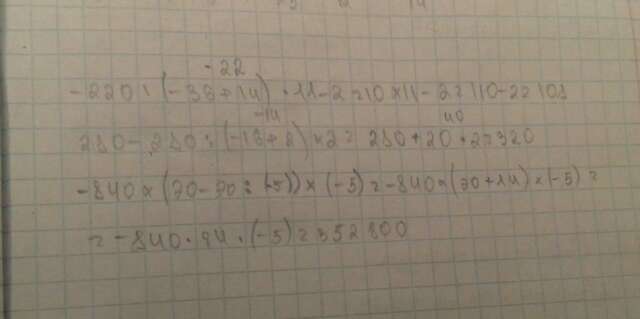 -22
-220:(-36+14)·11-2=10×11-2=110-2=108
-14 40
280-280:(-16+2)×2=280+20·2=320
-840×(70-70:(-5))×(-5)=-840×(70+14)×(-5)=
=-840·84·(-5)=352800